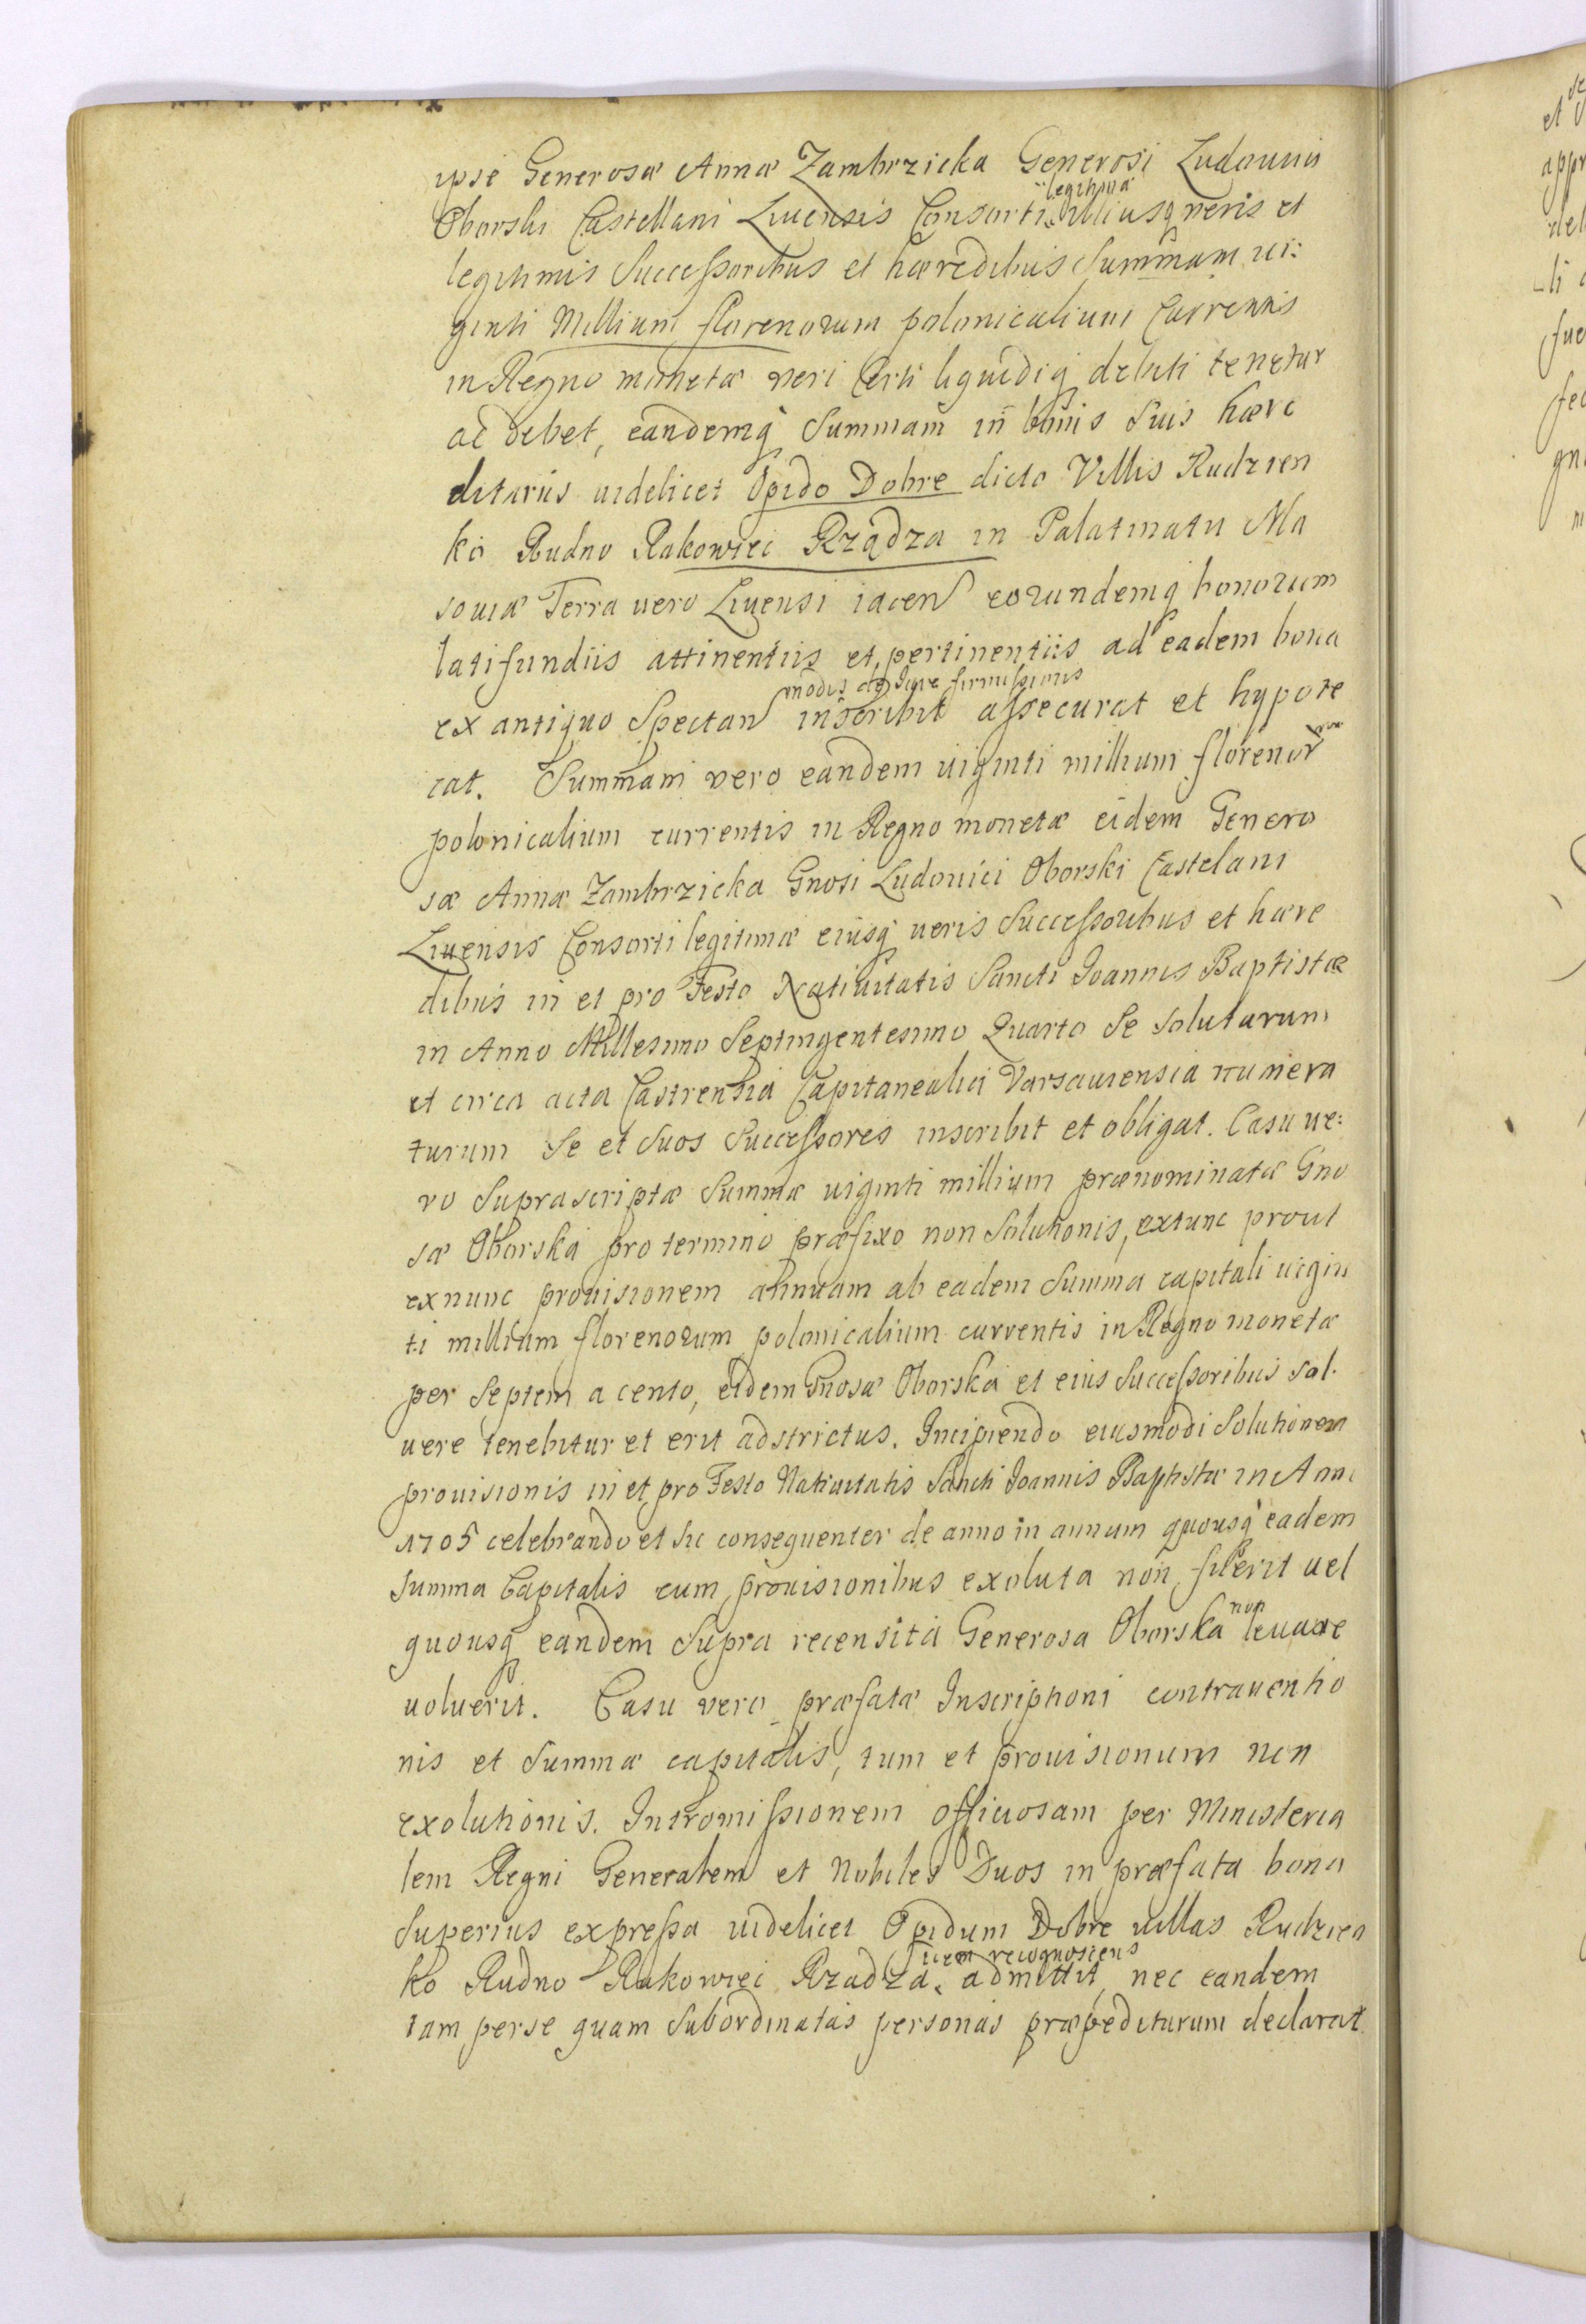 ipse Generosæ Annæ Zambrzicka Generosi Ludouici
Oborski Castellani Liuensis Consorti legitimæ illiusq veris et
legitimis Successoribus et hæredibus Summam ui:
ginti Millium florenorum polonicalium Currentis
in Regno monetæ veri Certi liquidiq debiti tenetur
ac debet, eandemq Summam in bonis Suis hære
ditariis uidelicet Opido Dobre dicto Villis Rudzien
ko Rudno Rakowiec Rządza in Palatinatu Ma
souiæ Terra uero Liuensi iacen eorundemq bonorum
latifundiis attinentiis et pertinentiis ad eadem bona
modis de Iure firmissimis
ex antiquo Spectan inscribit assecurat et hypote
cat. Summam vero eandem uiginti millium florenor
polonicalium currentis in Regno monetæ eidem Genero
sæ Annæ Zambrzicka Gnosi Ludouici Oborski Castelani
Liuensis Consorti legitimæ eiusq ueris Successoribus et hære
dibus in et pro Festo Natiuitatis Sancti Ioannis Baptistæ
in Anno Millesimo Septingentesimo Quarto Se Soluturum
et circa acta Castrensia Capitanealia Varsauiensia numera
turum Se et Suos Successores inscribit et obligat. Casu ue:
ro Suprascriptæ Summæ uiginti millium prænominatæ Gno
sæ Oborska pro termino præfixo non Solutionis, extunc prout
exnunc prouisionem annuam ab eadem Summa capitali uigin
ti millium florenorum polonicalium currentis in Regno monetæ
per Septem a cento, eidem Gnosæ Oborska et eius Successoribus Sol
uere tenebitur et erit adstrictus. Incipiendo eiusmodi Solutionem
prouisionis in et pro Festo Natiuitatis Sancti Ioannis Baptistæ in Anno
1705 celebrando et sic consequenter de anno in annum quousq eadem
Summa Capitalis cum prouisionibus exoluta non fuerit uel
quousq eandem Supra recensita Generosa Oborska non leuare
uoluerit. Casu vero præfatæ Inscriptioni contrauentio
nis et Summæ capitalis, tum et prouisionum non
exolutionis. Intromissionem officiosam per Ministeria
lem Regni Generalem et Nobiles Duos in præfata bona
Superius expressa uidelicet Opidum Dobre uillas Rudzien
ko Rudno Rakowiec Rzadza, recognoscens admittit, nec eandem
tam perse quam Subordinatas personas præpediturum declarat